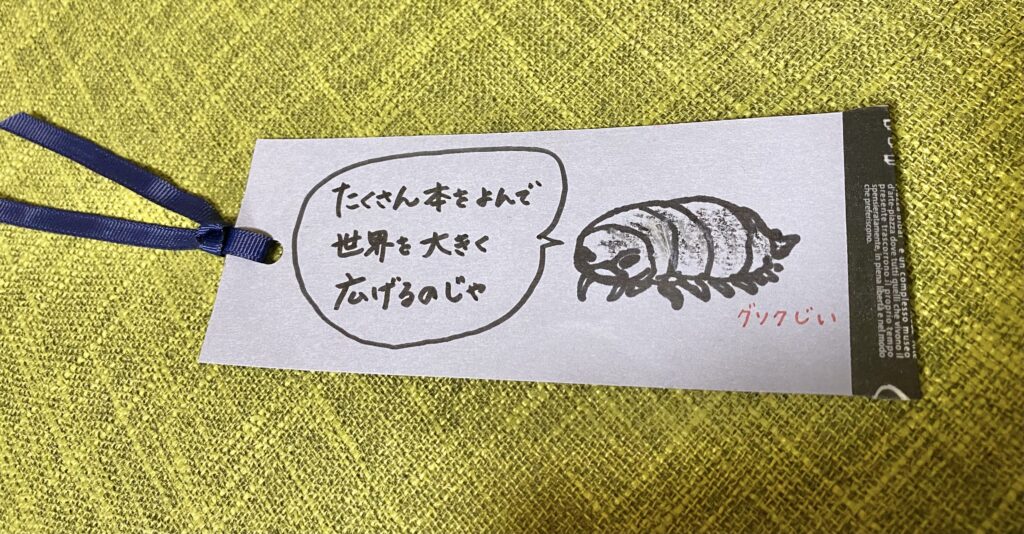 たくさん本をよんで
世界を大きく
広げるのじゃ
グソクじい
è un complesso museo
d'arte-piazza dove tutti quelli che vivono il
presente trascorrono il proprio tempo
spensieratamente, in piena libertà e nel modo
che preferiscono.